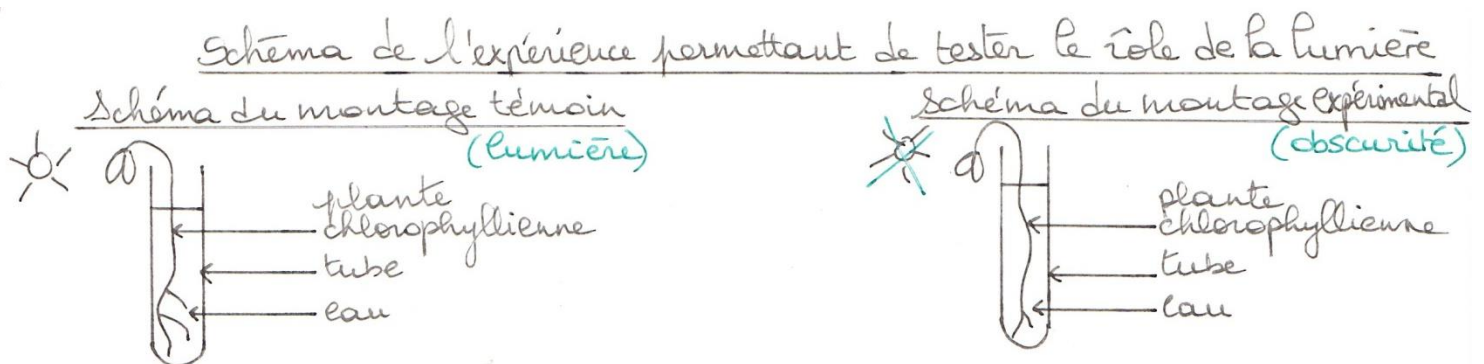 Schéma de l'expérience permettant de tester le rôle de la lumière
Schéma du montage témoin
(lumière)
plante
chlorophyllienne
tube
eau
Schéma du montage expérimental
(obscurité)
plante
chlorophyllienne
tube
eau